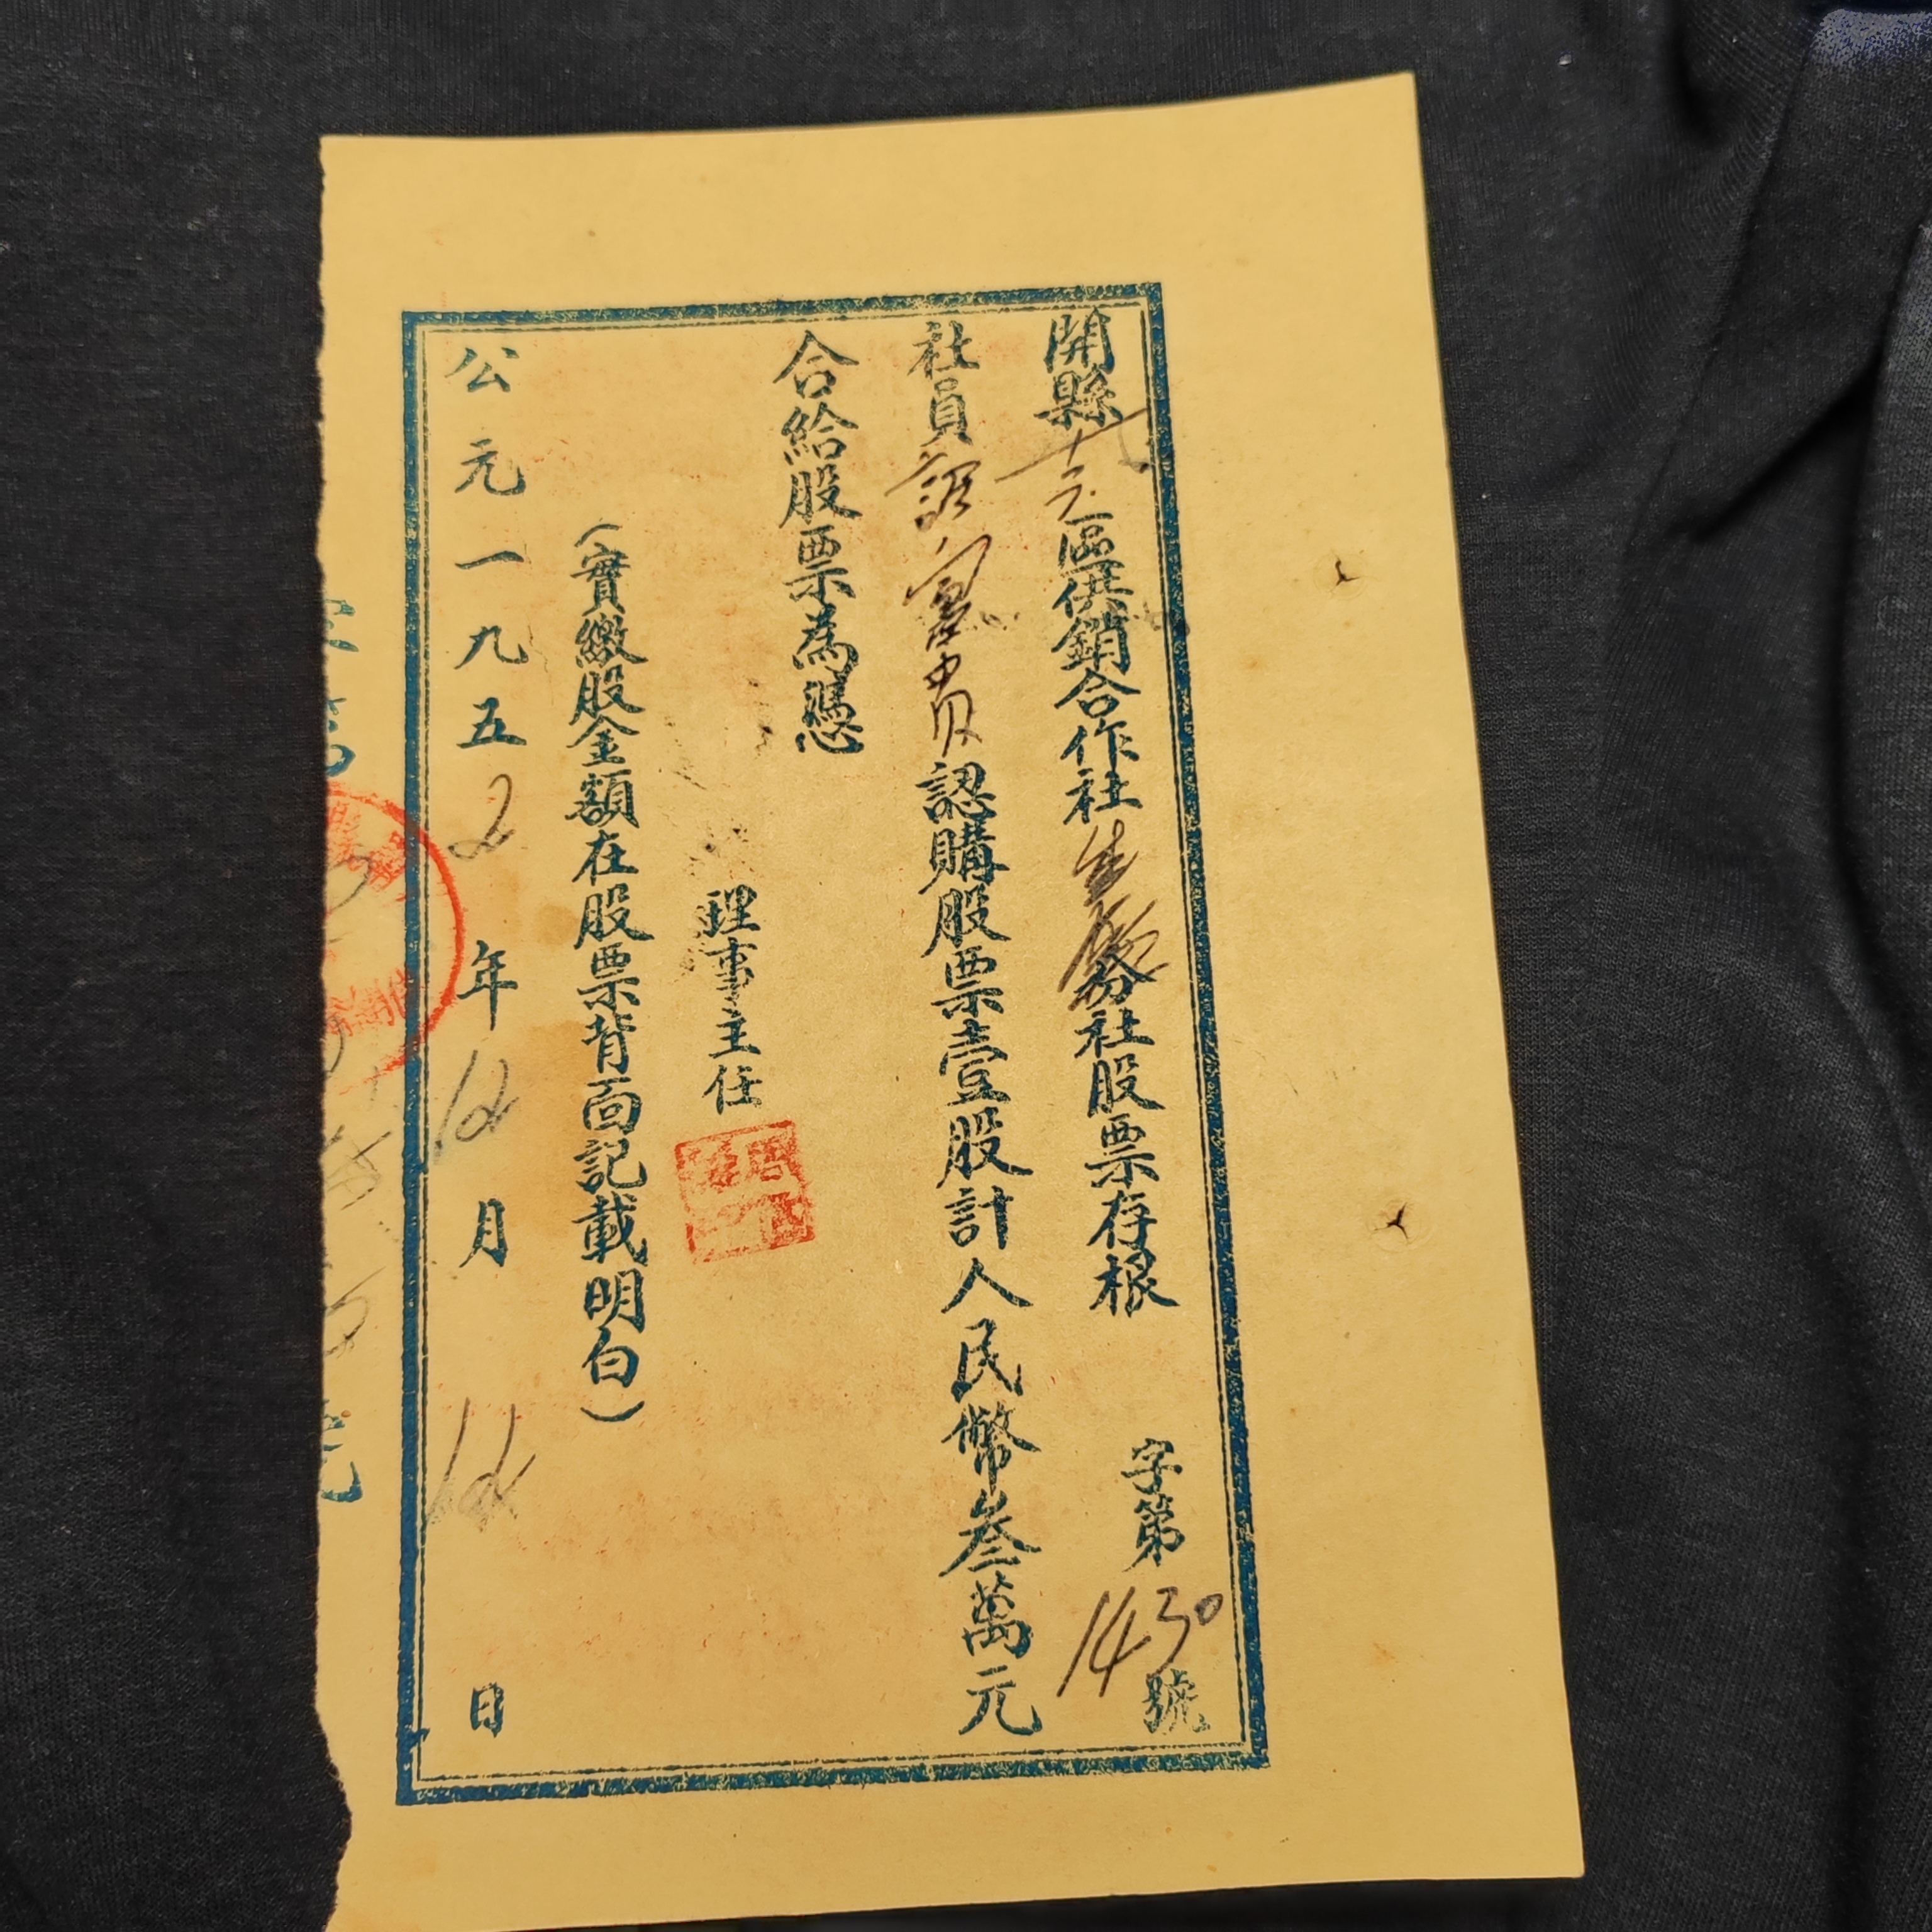 開縣十二區供銷合作社 份社股票存根 字第1430號
社員 富貴認購股票壹股計人民幣叁萬元
合給股票為憑
理事主任
(實繳股金額在股票背面記載明白)
公元一九五2年12月12日